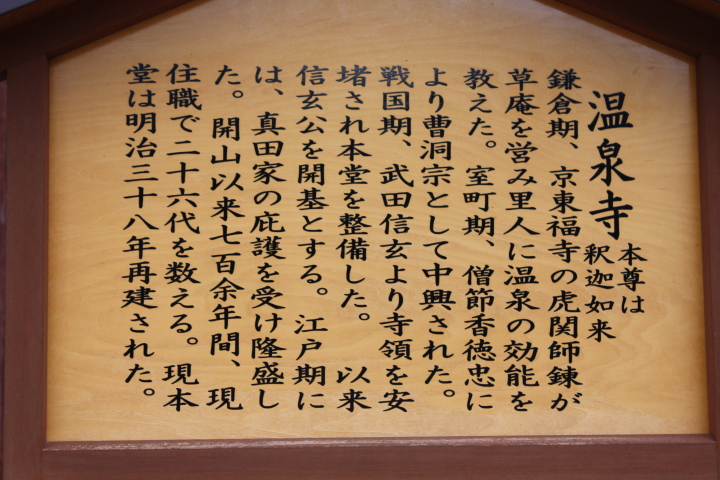 温泉寺
本尊は
釈迦如来
鎌倉期、京東福寺の虎関師錬が
草庵を営み里人に温泉の効能を
教えた。室町期、僧節香徳忠に
より曹洞宗として中興された。
戦国期、武田信玄より寺領を安
堵され本堂を整備した。 以来
信玄公を開基とする。江戸期に
は、真田家の庇護を受け隆盛し
た。開山以来七百余年間、現
住職で二十六代を数える。現本
堂は明治三十八年再建された。